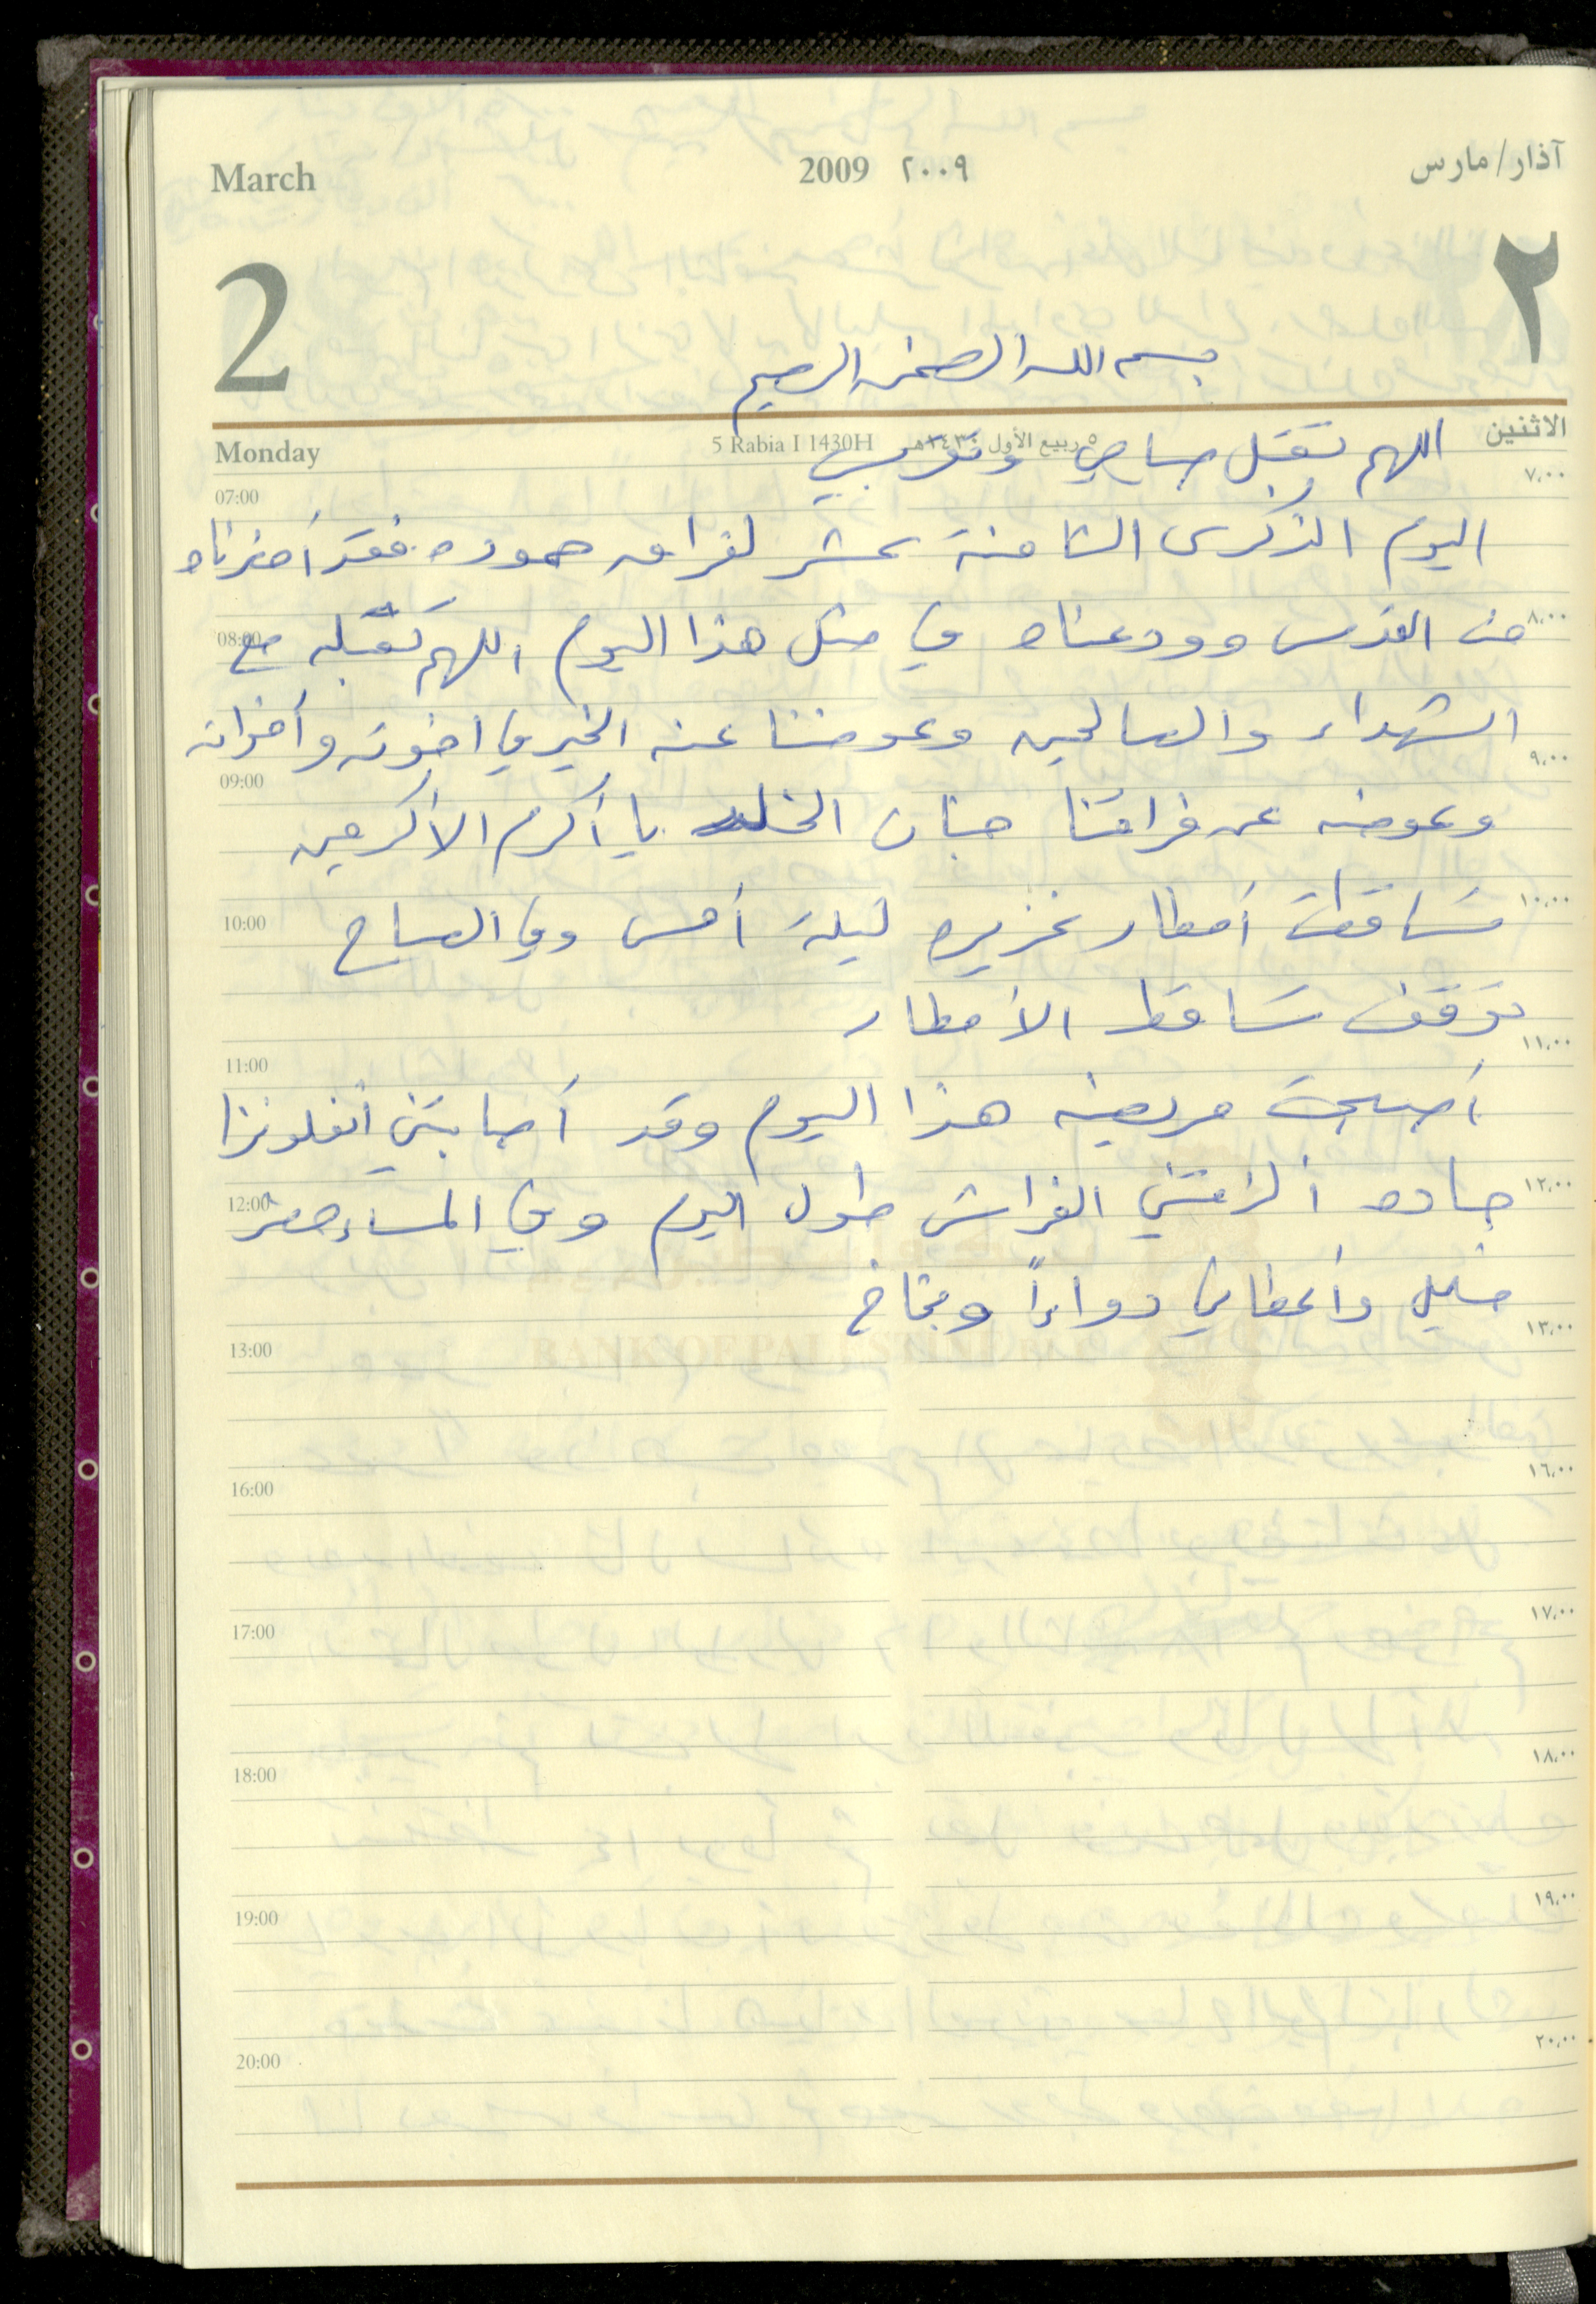 March 2009 ٢٠٠٩ آذار/مارس
2 ٢
بسم الله الرحمن الرحيم
Monday 5 Rabia I 1430H ٥ ربيع الأول ١٤٣٠هـ الاثنين
اللهم تقبل صيامي وتقربي
اليوم الذكرى الثامنة عشر لفراق حموده فقد أحضرناه
من القدس وودعناه في مثل هذا اليوم اللهم تقبله مع
الشهداء والصالحين وعوضنا عنه الخير في اخوته وأخواته
وعوضه عن فراقنا جنان الخلد يا أكرم الأكرمين
تساقطت أمطار غزيره ليلة أمس وفي الصباح
توقف تساقط الأمطار
أصبحت مريضه هذا اليوم وقد أصابتني أنفلونزا
حاده ألزمتني الفراش طول اليوم وفي المساء حضر
خليل وأعطاني دواءاً وبخاخ
07:00 ٧,٠٠
08:00 ٨,٠٠
09:00 ٩,٠٠
10:00 ١٠,٠٠
11:00 ١١,٠٠
12:00 ١٢,٠٠
13:00 ١٣,٠٠
16:00 ١٦,٠٠
17:00 ١٧,٠٠
18:00 ١٨,٠٠
19:00 ١٩,٠٠
20:00 ٢٠,٠٠
BANK OF PALESTINE